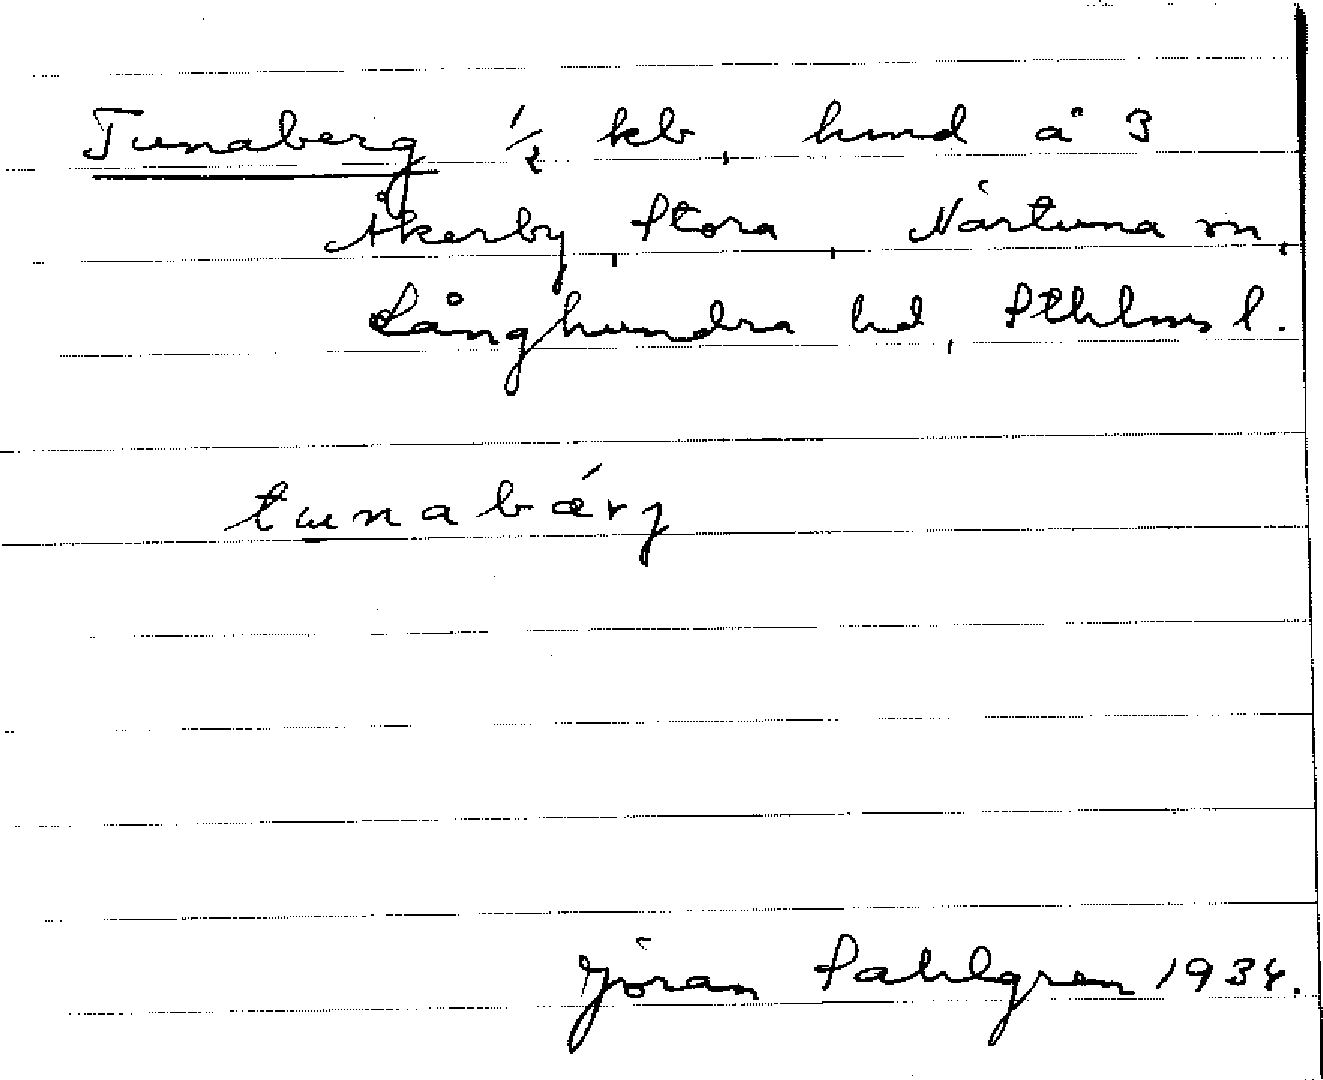 Tunaberg 1/2 kb, hmd å 3
Åkerby, Stora, Närtuna sn,
Långhundra hd, Sthlms l.
tunabǽrj
Jöran Sahlgren 1934.